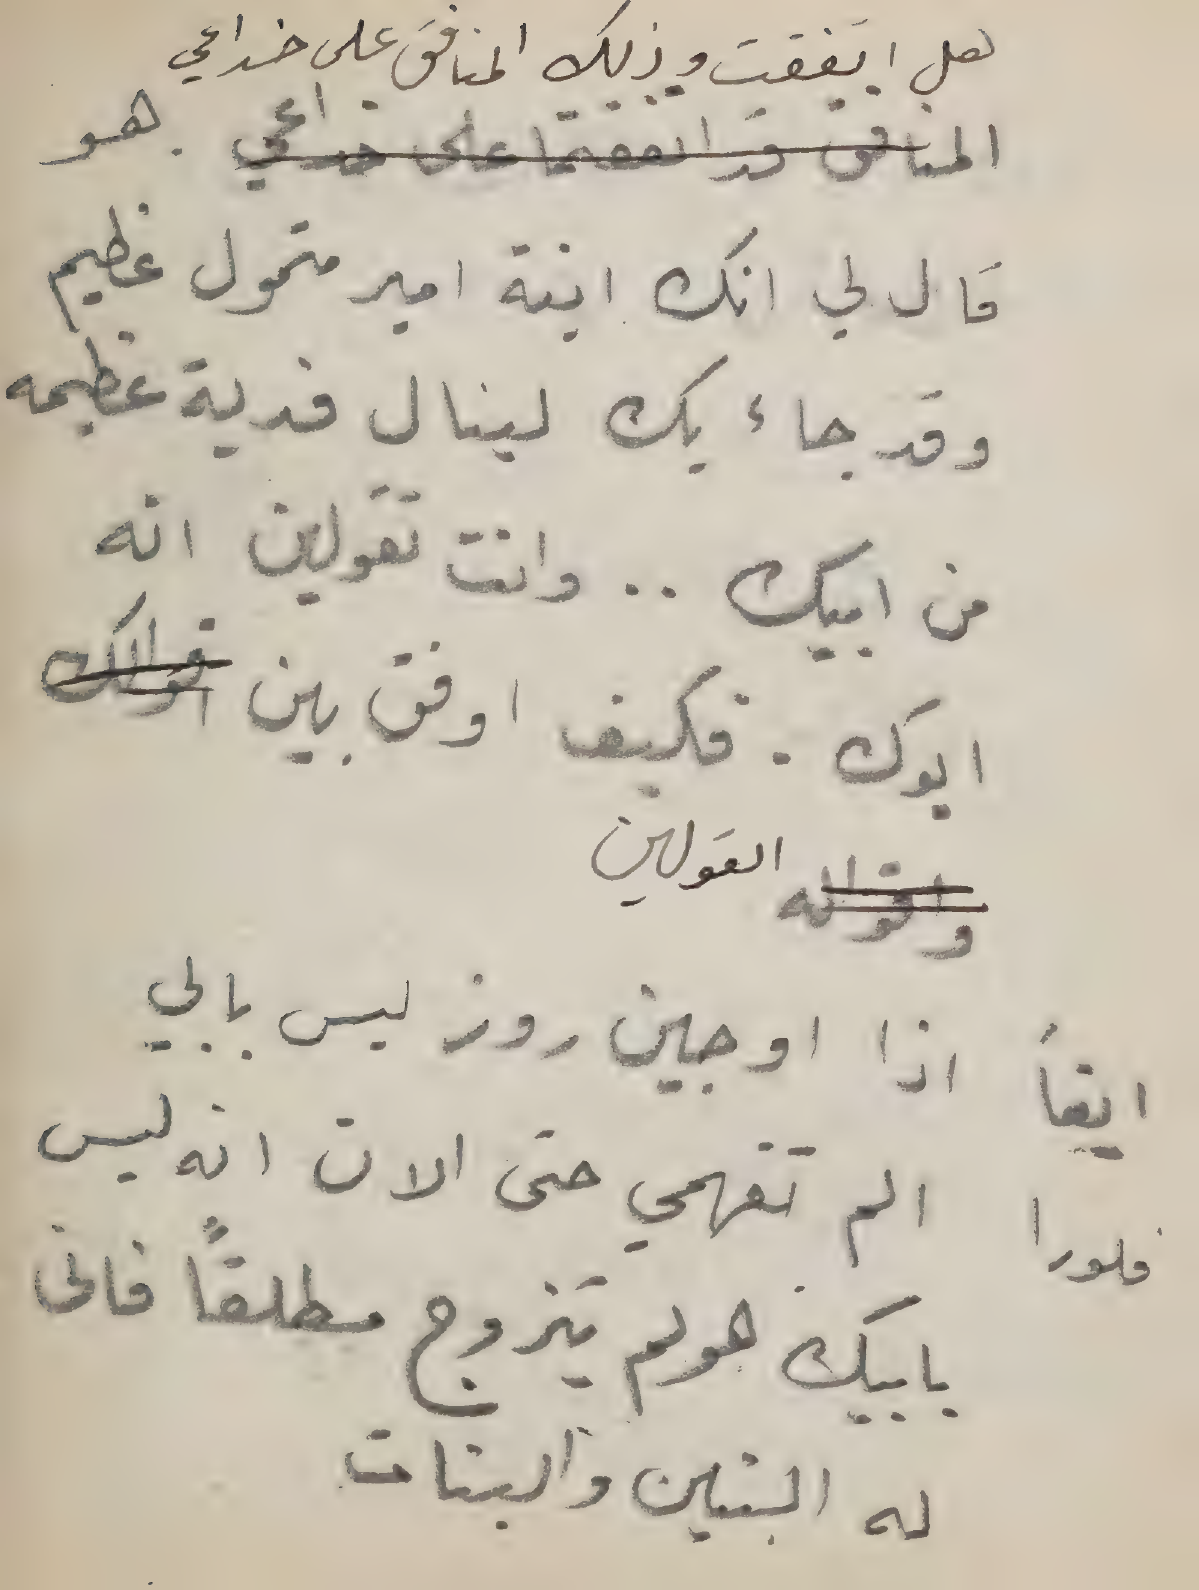 هل اتفقت وذلك المنافق على خداعي
المنافق قد اتفقتما على خداعي . هو
قال لي انك ابنة امير متمول عظيم
وقد جاء بك لينال فدية عظيمه
من ابيك .. وانت تقولين انه
ابوك . فكيف اوفق بين اقوالك
واقواله القولين
ايفا اذا اوجين روز ليس بابي
فلورا الم تفهمي حتى الان انه ليس
بابيك هو لم يتزوج مطلقاً فانى
له البنين والبنات